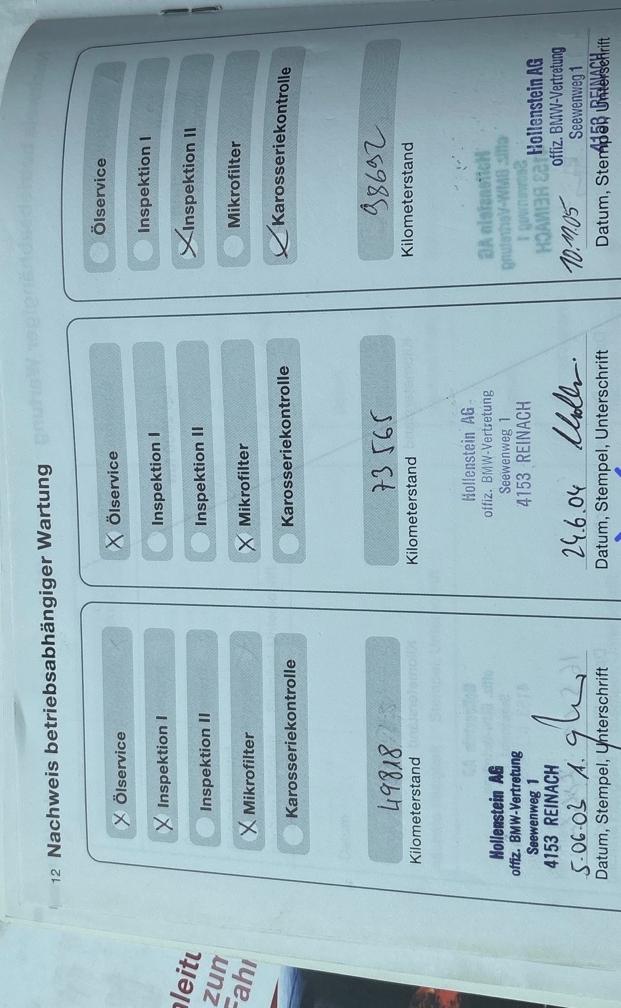 12 Nachweis betriebsabhängiger Wartung
X Ölservice
X Inspektion I
Inspektion II
X Mikrofilter
Karosseriekontrolle
49818
Kilometerstand
Hollenstein AG
offiz. BMW-Vertretung
Seewenweg 1
4153 REINACH
5-06-03
Datum, Stempel, Unterschrift
X Ölservice
Inspektion I
Inspektion II
X Mikrofilter
Karosseriekontrolle
73565
Kilometerstand
Hollenstein AG
offiz. BMW-Vertretung
Seewenweg 1
4153 REINACH
24.6.04
Datum, Stempel, Unterschrift
Ölservice
Inspektion I
X Inspektion II
Mikrofilter
X Karosseriekontrolle
98692
Kilometerstand
Hollenstein AG
offiz. BMW-Vertretung
Seewenweg 1
4153 REINACH
10.11.05
Datum, Stempel, Unterschrift
zum